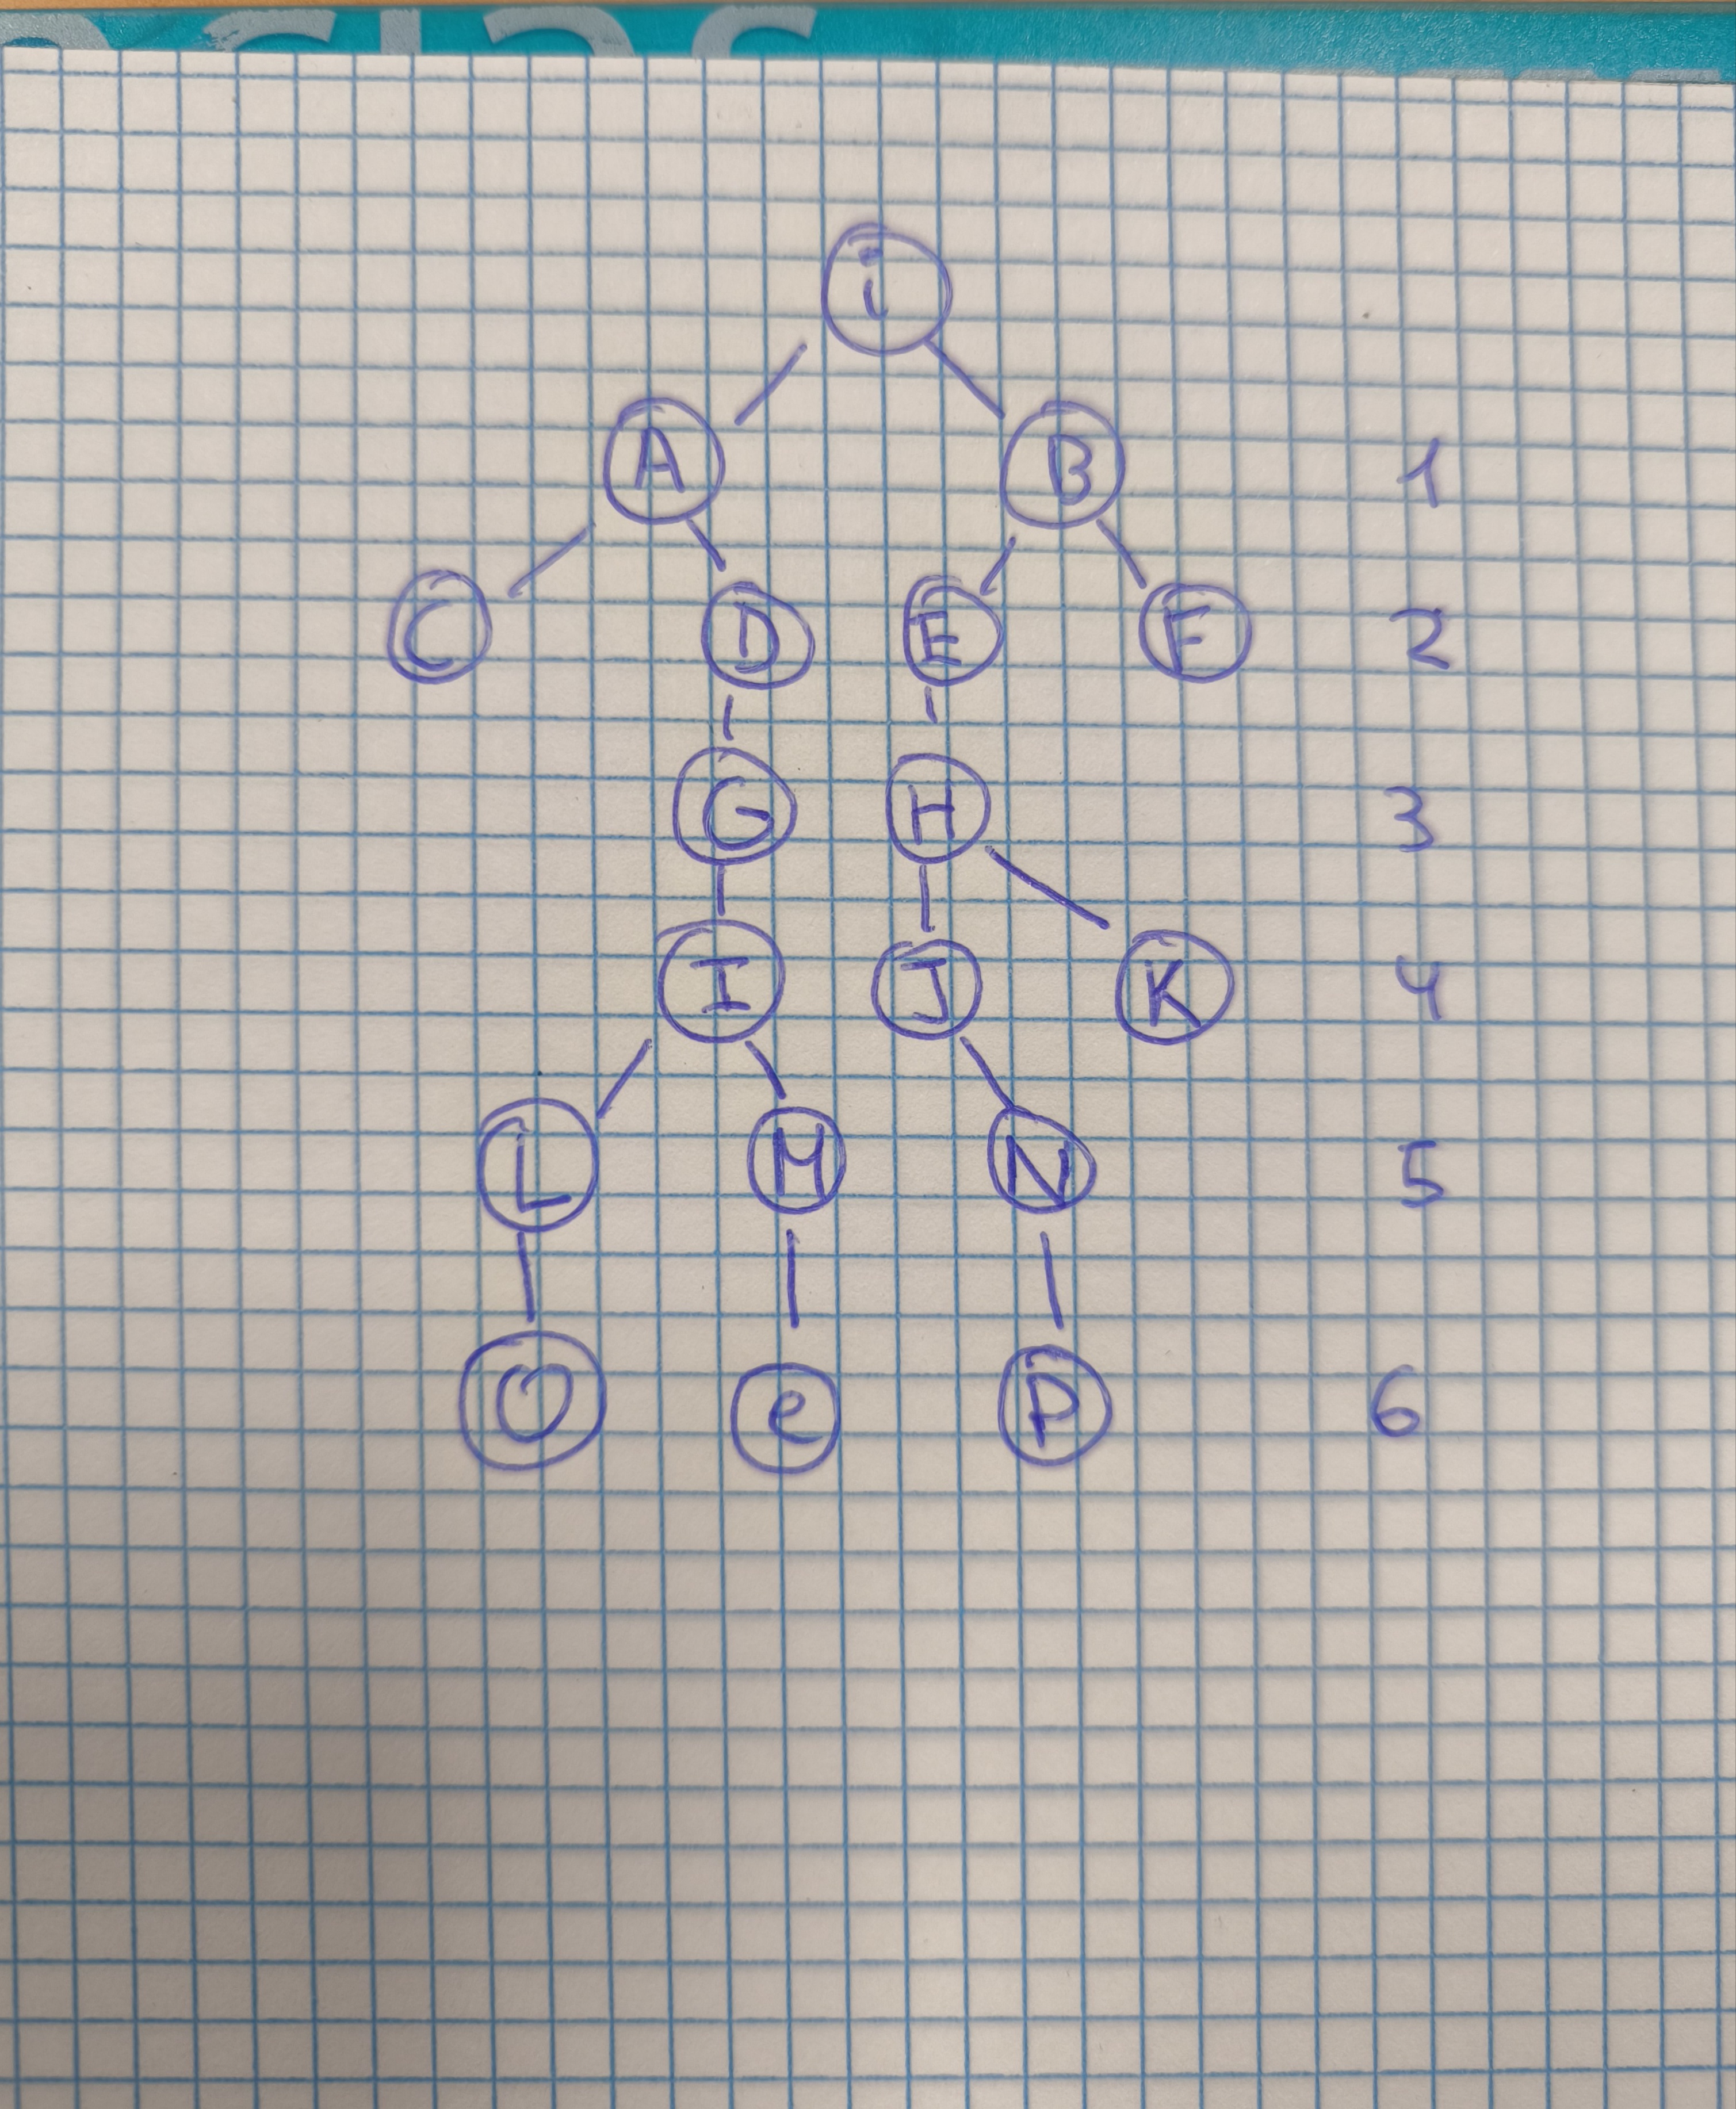 i
A B 1
C D E F 2
G H 3
I J K 4
L M N 5
O e P 6